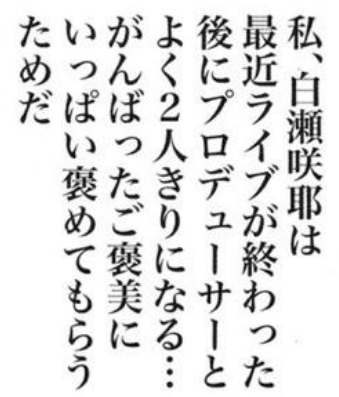 私、白瀬咲耶は
最近ライブが終わった
後にプロデューサーと
よく２人きりになる…
がんばったご褒美に
いっぱい褒めてもらう
ためだ